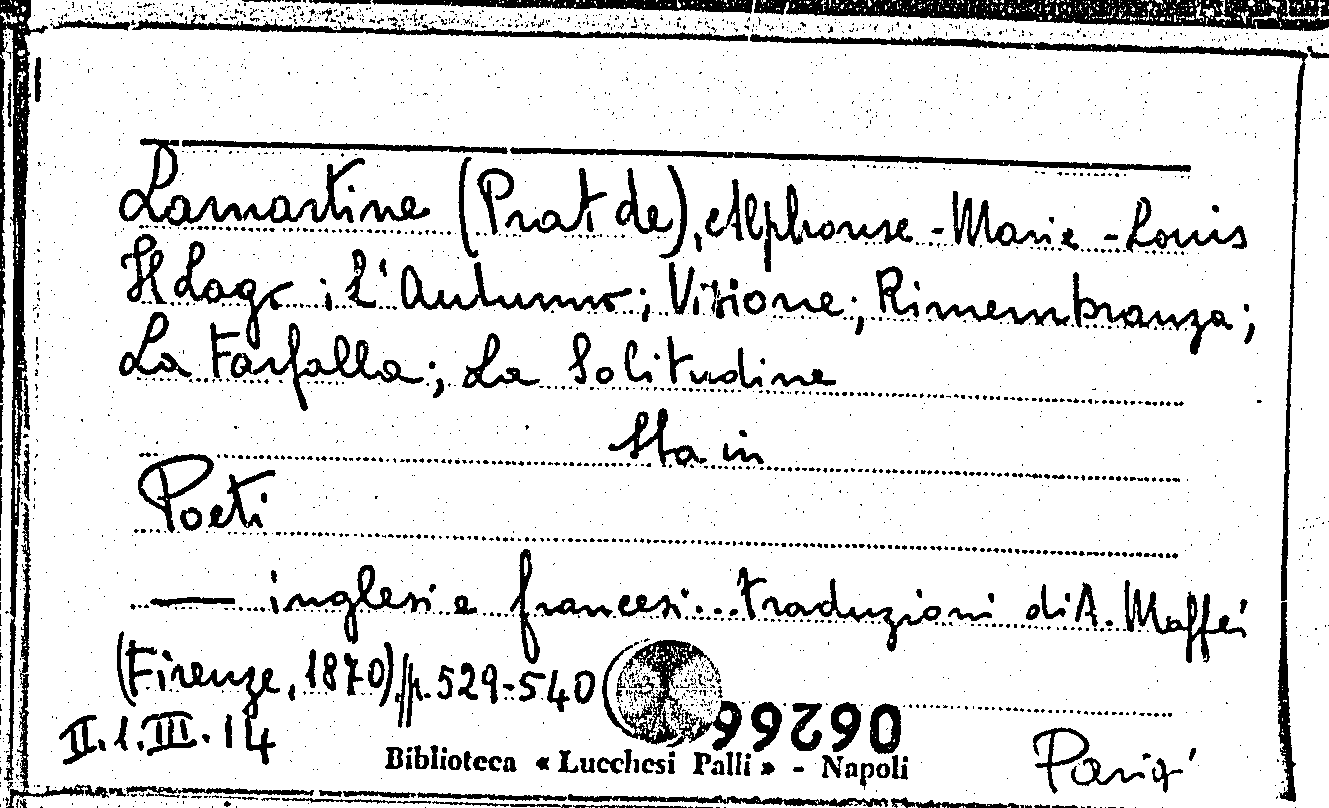 Lamartine (Prat de), Alphonse-Marie-Louis
Il Lago; L'Autunno; Visione; Rimembranza;
La Farfalla; La Solitudine
Sta in
Poeti
— inglesi e francesi...traduzioni di A. Maffei
(Firenze, 1870) p. 529-540
06266
II.1.III.14
Biblioteca « Lucchesi Palli » - Napoli